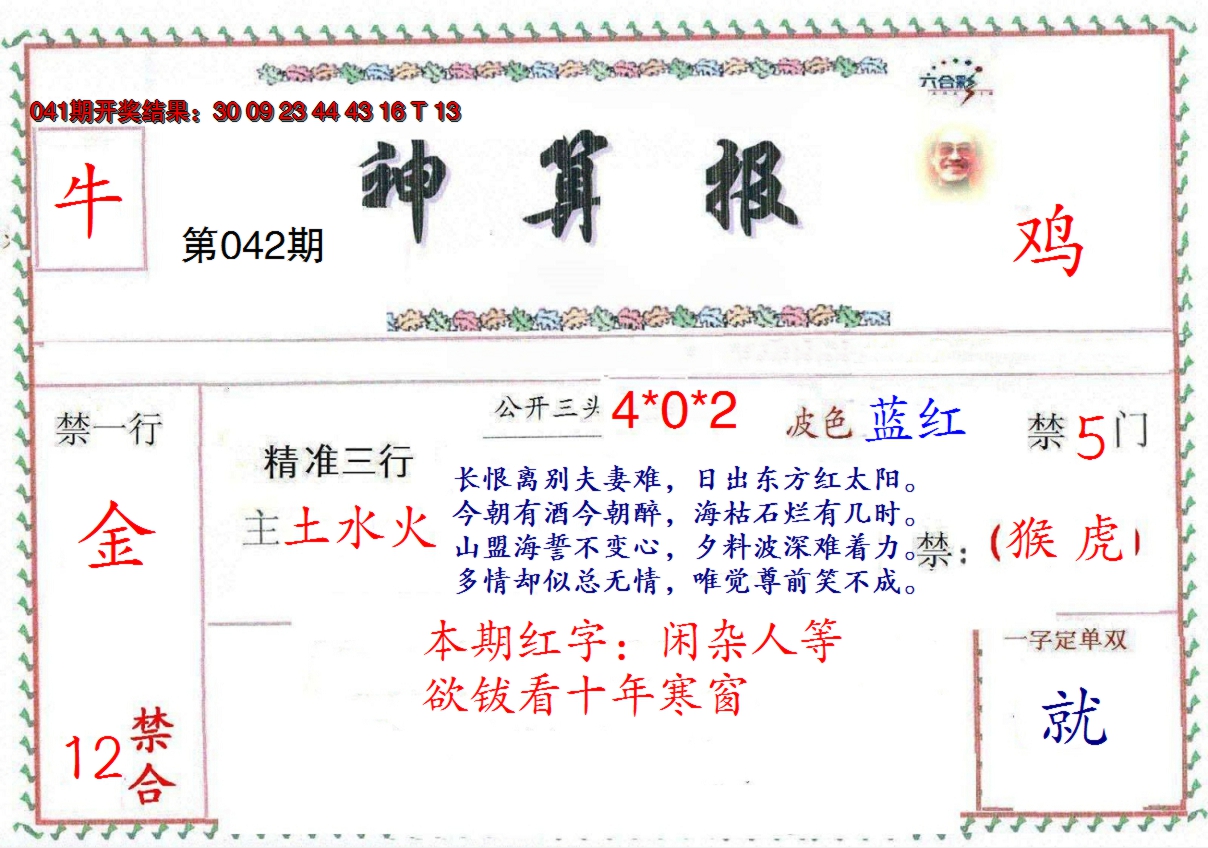 六合彩
041期开奖结果：30 09 23 44 43 16 T 13
牛
神算报
第042期
鸡
禁一行
金
12禁合
精准三行
主土水火
公开三头 4*0*2
波色 蓝红
禁5门
长恨离别夫妻难，日出东方红太阳。
今朝有酒今朝醉，海枯石烂有几时。
山盟海誓不变心，夕料波深难着力。
多情却似总无情，唯觉尊前笑不成。
禁：（猴 虎）
本期红字：闲杂人等
欲钹看十年寒窗
一字定单双
就